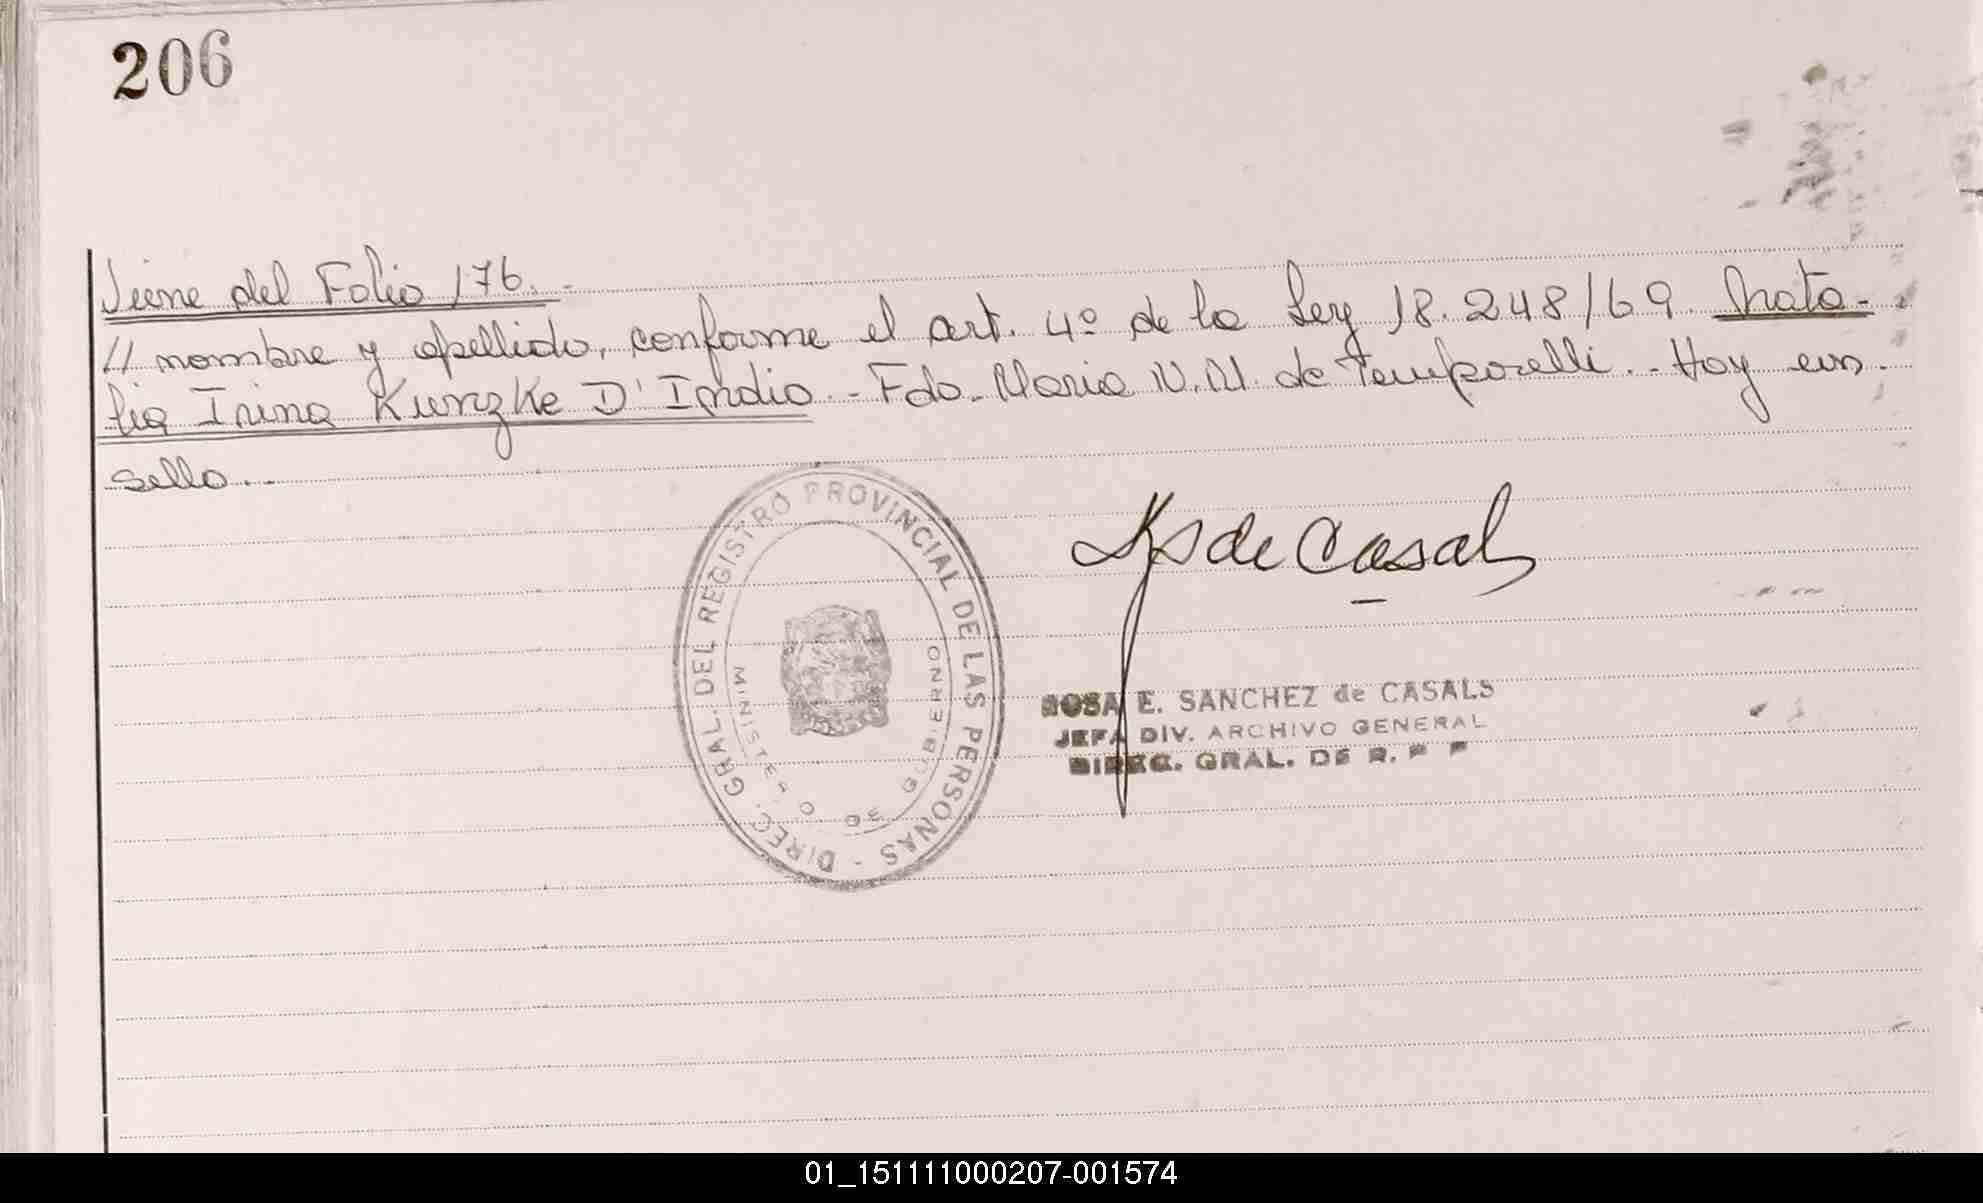 206
Viene del Folio 176.-
// nombre y apellido, conforme el art. 4º de la Ley 18.248/69. Nata-
lia Irina Kunzke D'Indio.- Fdo. Maria N.N. de Temporelli.- Hay un
sello.-
DIREC. GRAL. DEL REGISTRO PROVINCIAL DE LAS PERSONAS -
MINISTERIO DE GOBIERNO
de Casals
ROSA E. SANCHEZ de CASALS
JEFA DIV. ARCHIVO GENERAL
DIREC. GRAL. DE R. P P
01_151111000207-001574